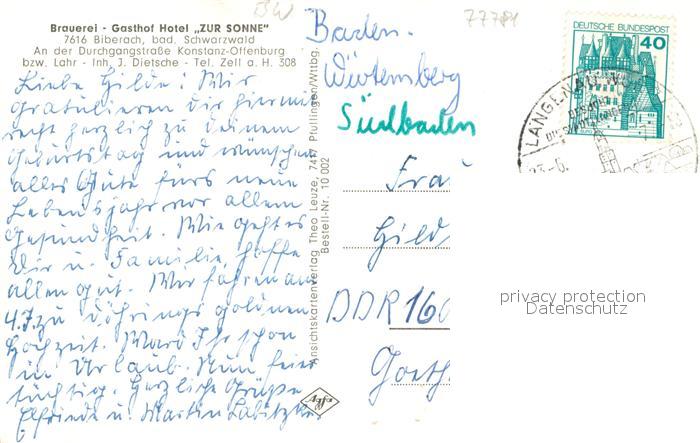 BW
77781
Brauerei - Gasthof Hotel „ZUR SONNE"
7616 Biberach, bad. Schwarzwald
An der Durchgangstraße Konstanz-Offenburg
bzw. Lahr - Inh. J. Dietsche - Tel. Zell a. H. 308
Liebe Hilde! Wir
gratulieren dir hiermit
recht herzlich zu deinem
Geburtstag und wünschen
alles Gute fürs neue
Lebensjahr vor allem
Gesundheit. Wie geht es
Dir u. Familie, hoffe
allen gut. Wir fahren am
4.7. zu goldnen
Hochzeit. Ward Ihr schon
in Urlaub. Nun feier
tüchtig. Herzliche Grüße
Elfriede u. Martin
Ansichtskartenverlag Theo Leuze, 7417 Pfullingen/Wttbg.
Bestell-Nr. 10 002
Agfa
Baden-
Würtemberg
Südbaden
DEUTSCHE BUNDESPOST
40
LANGENAU
23.-6.
Frau
Hild
DDR 160
Goeth
privacy protection
Datenschutz